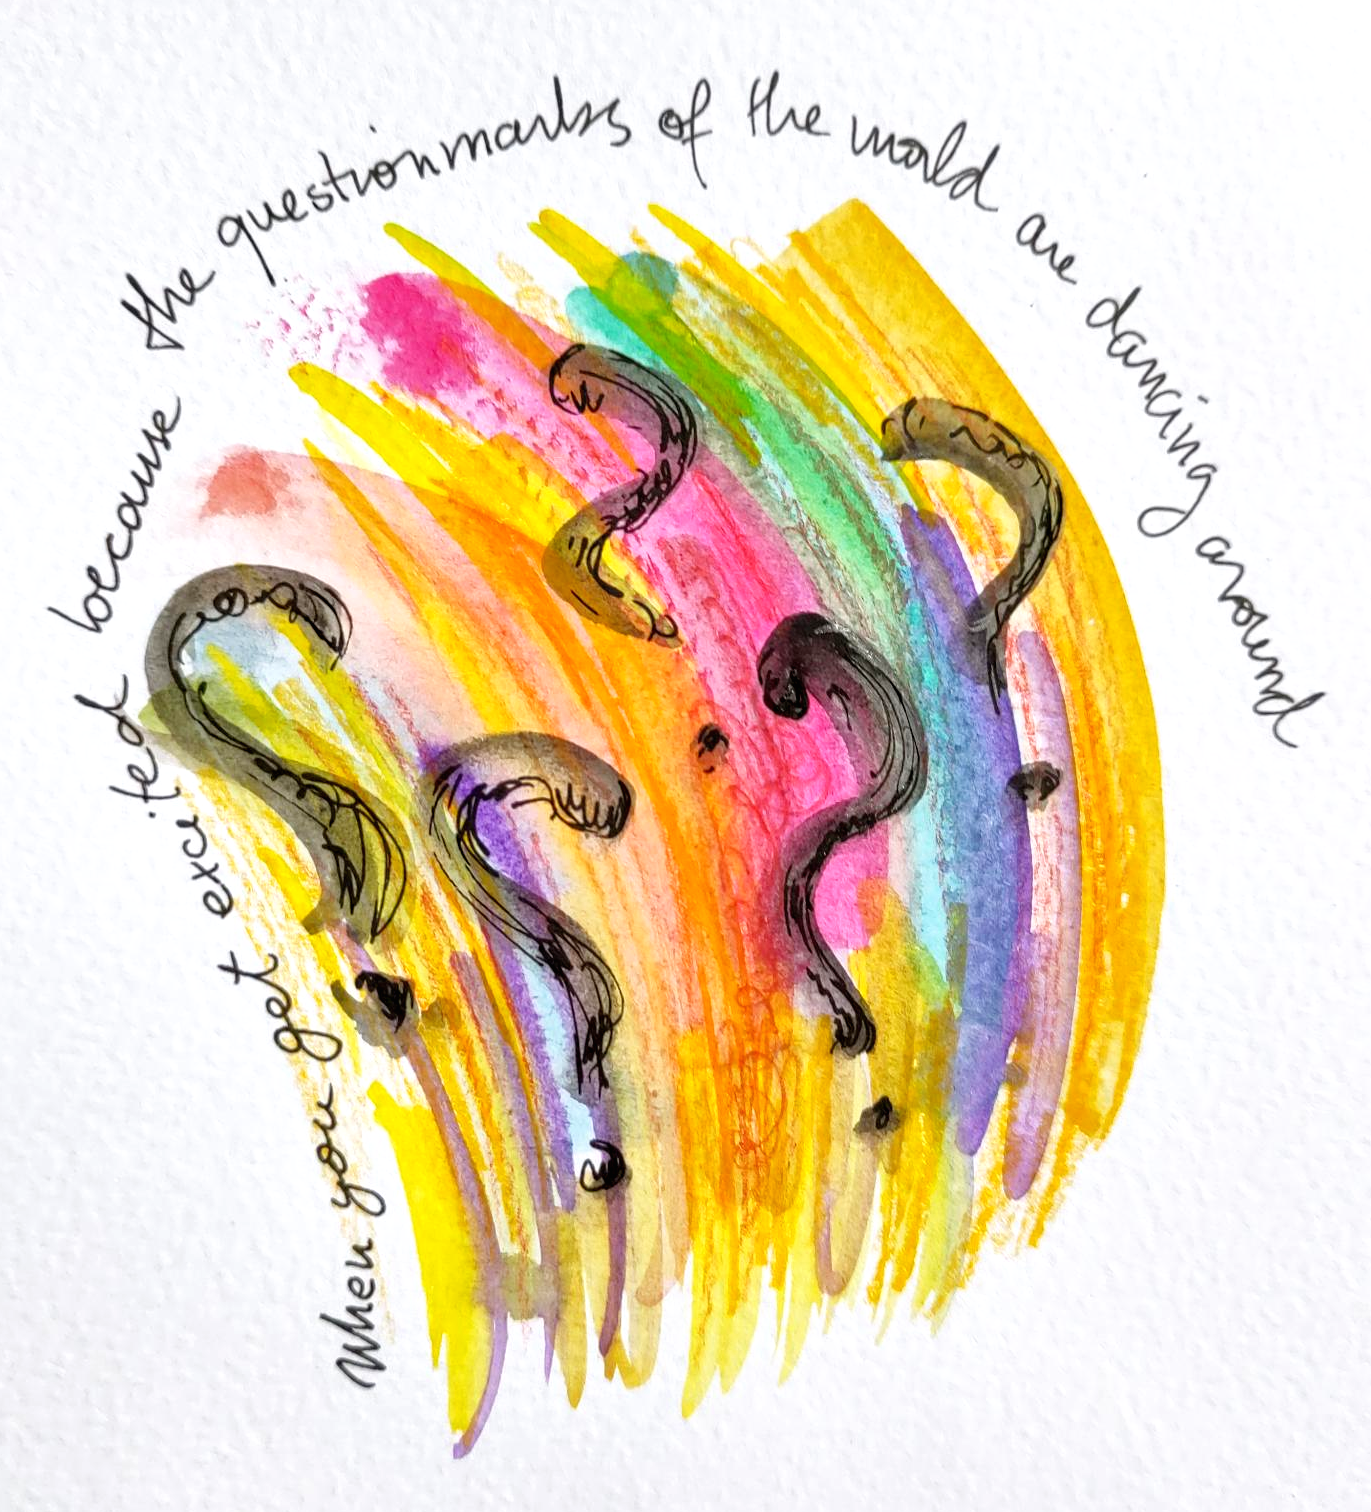 When you get excited because the questionmarks of the world are dancing around